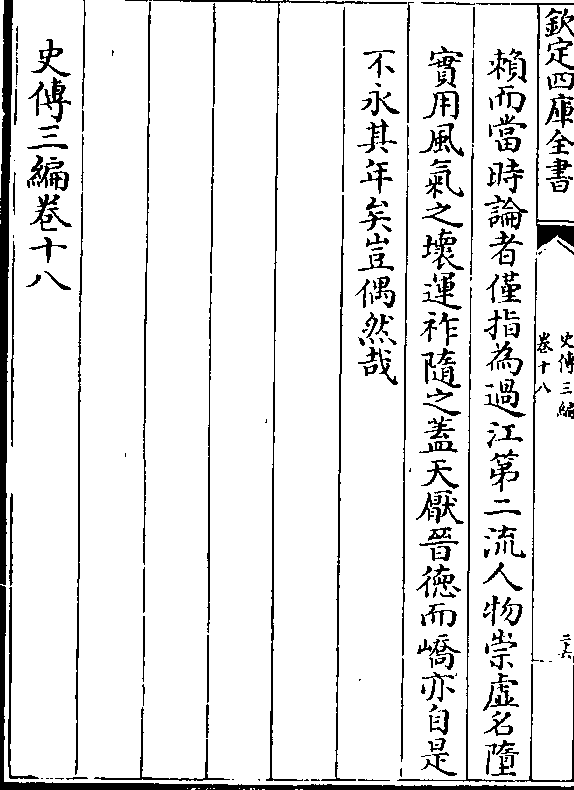 欽定四庫全書
史傳三編
卷十八
二六
賴而當時論者僅指為過江第二流人物崇虛名隳
實用風氣之壞運祚隨之蓋天厭晉徳而嶠亦自是
不永其年矣豈偶然哉
史傳三編卷十八